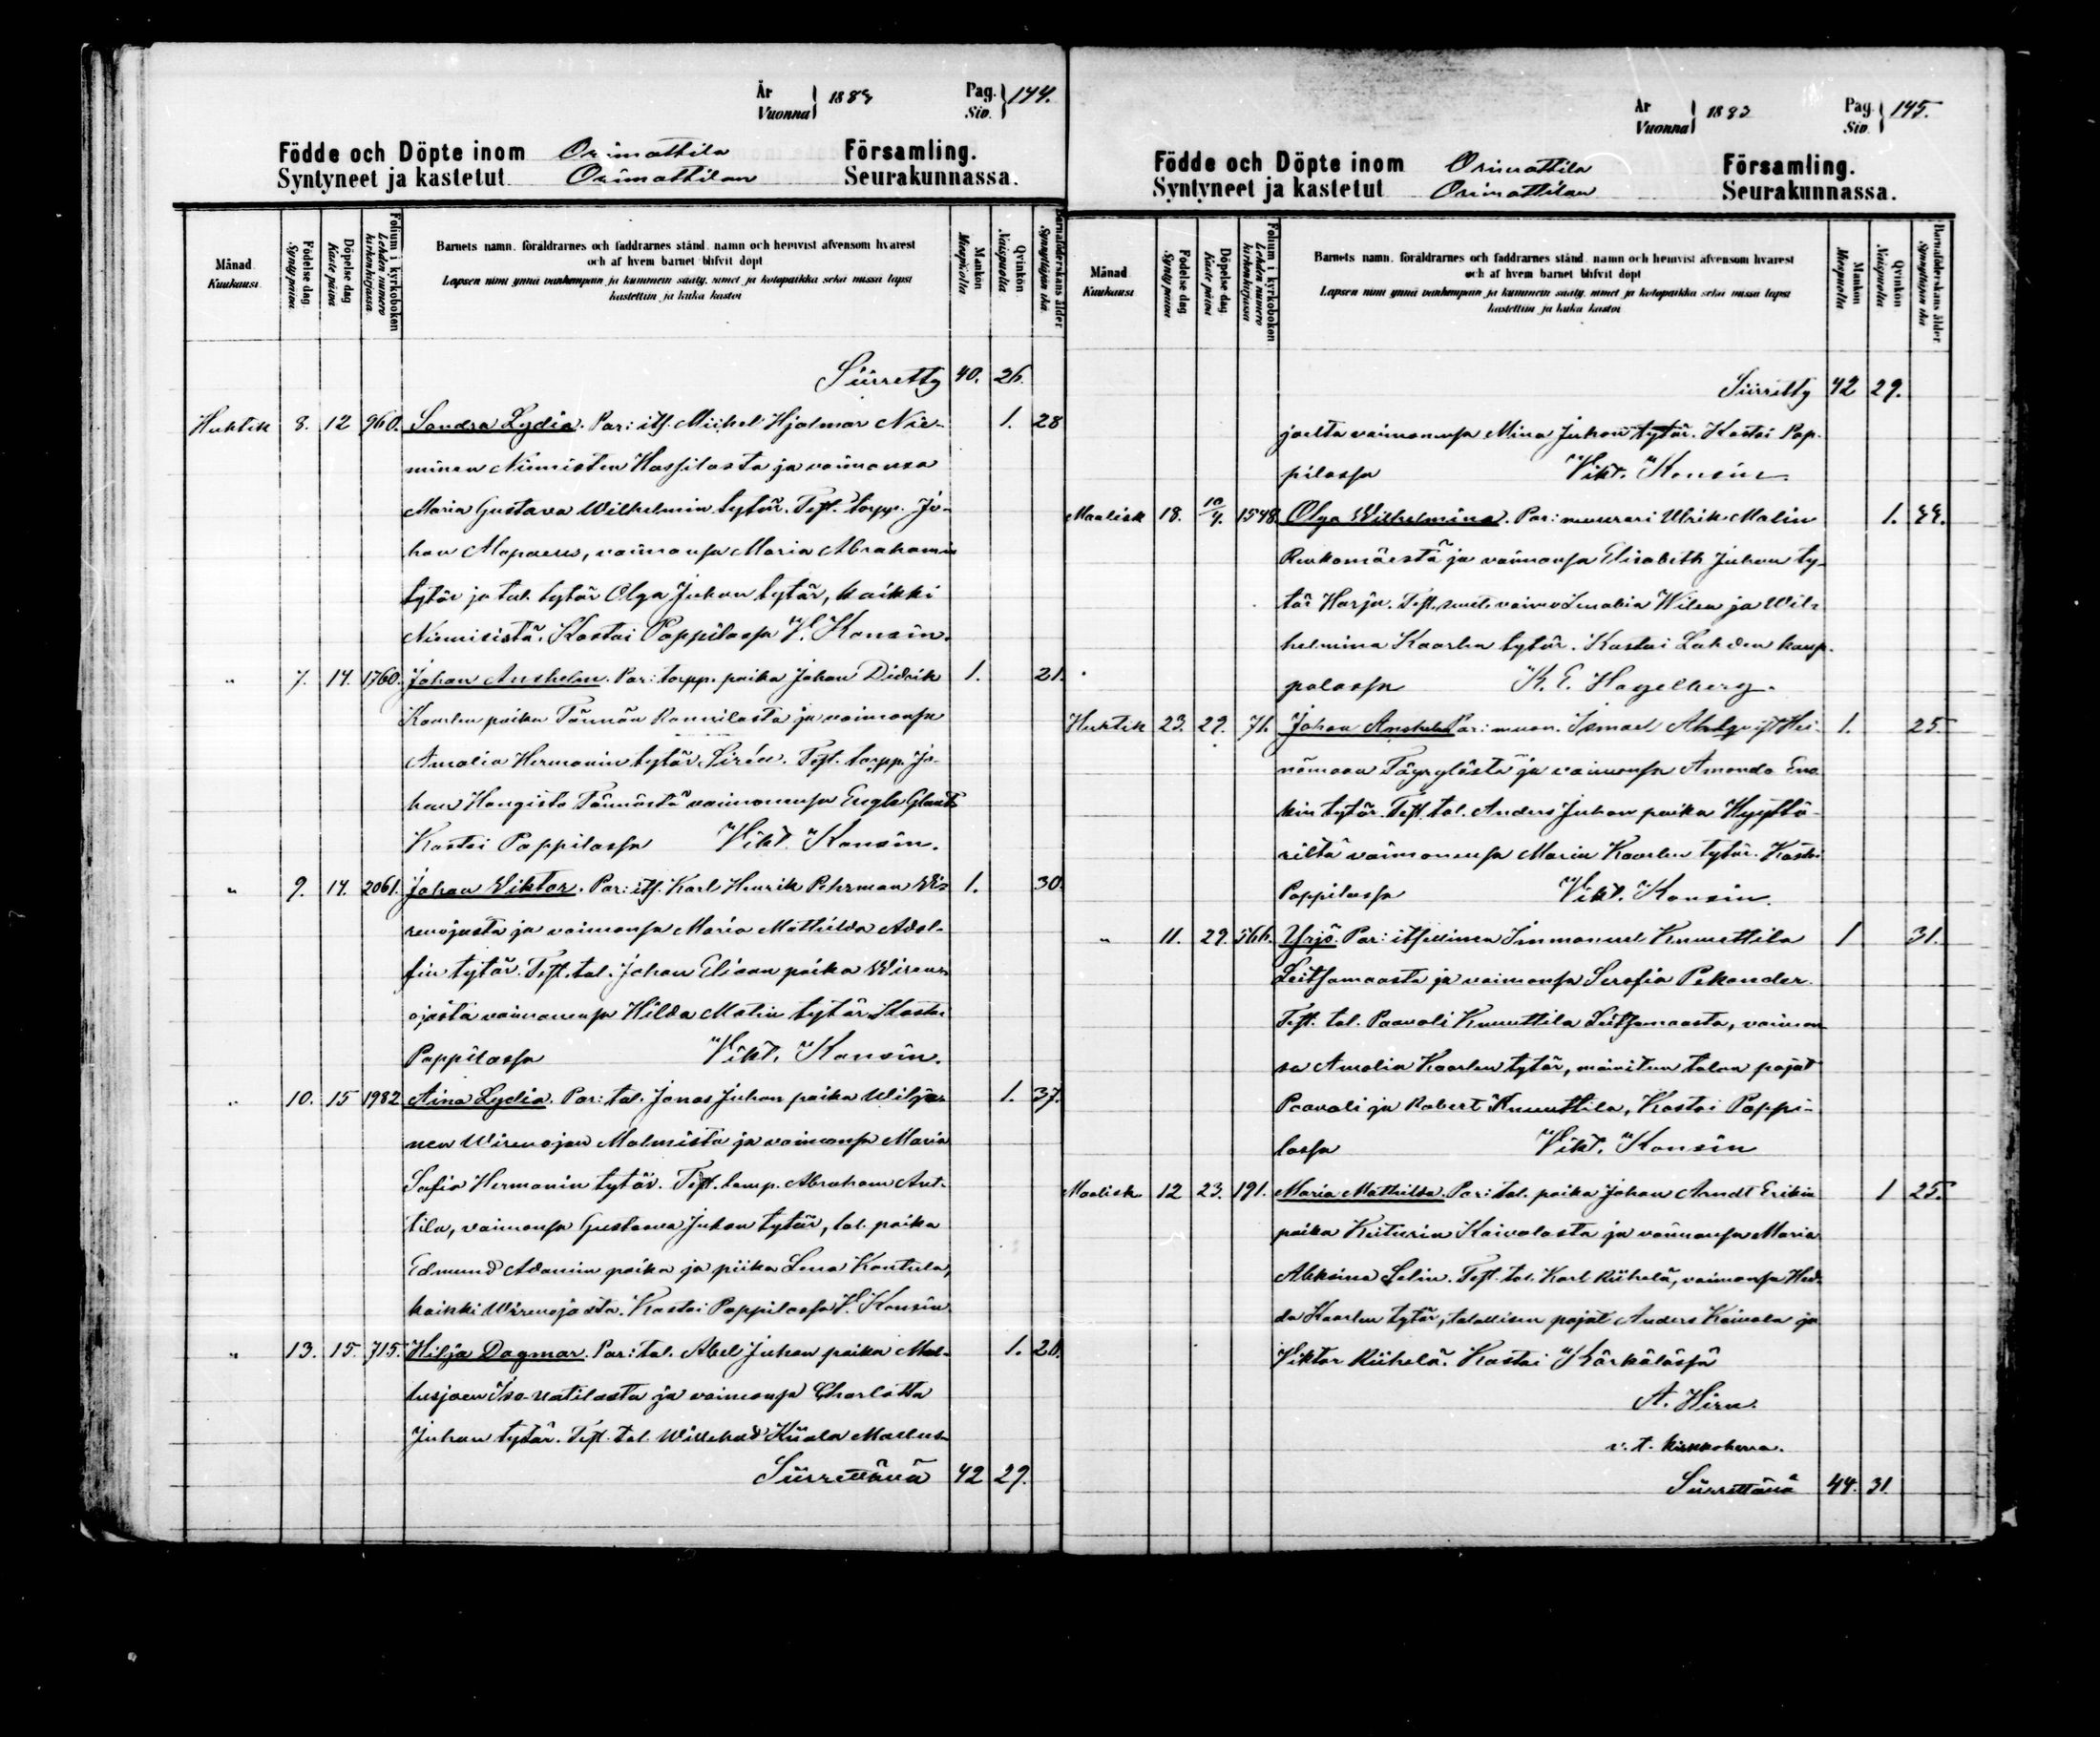 År Vuonna } 1883 Pag. Siv. } 144.
Födde och Döpte inom Orimattila Församling.
Syntyneet ja kastetut Orimattilan Seurakunnassa.
Månad Kuukausi
Födelse dag Synty päivä
Döpelse dag Kaste päivä
Folium i kyrkoboken Lehden numero kirkonkirjassa
Barnets namn, föräldrarnes och faddrarnes stånd, namn och hemvist äfvensom hvarest
och af hvem barnet blifvit döpt
Lapsen nimi ynnä vanhempain ja kummein sääty, nimet ja kotopaikka sekä missä lapsi
kastettiin ja kuka kastoi
Mankön Miespuolia
Qvinkön Naispuolia
Barnaföderskans ålder Synnyttäjän ikä
Siirretty 40. 26.
Huhtik 8. 12 960. Sandra Lydia. Par: its. Mickel Hjalmar Nie- 1. 28
minen Niemisten Hassilasta ja vaimonsa
Maria Gustava Wilhelmin tytär. Test. torpp. Jo-
han Alapaeus, vaimonsa Maria Abrahamin
tytär ja tal. tytär Olga Juhan tytär, kaikki
Niemisistä. Kastoi Pappilassa V. Konsin.
" 7. 14. 1760. Johan Anshelm. Par: torpp. poika Johan Didrik 1. 21.
Kaarlen poika Tännän Rannilasta ja vaimonsa
Amalia Hermanin tytär Sirén. Test. torpp. Jo-
han Hongisto Tännästä vaimonensa Engla Glant
Kastoi Pappilassa Vikt. Konsin.
" 9. 14. 2061. Johan Viktor. Par: its. Karl Henrik Pehrman Wi- 1. 30.
renojasta ja vaimonsa Maria Mathilda Adol-
fin tytär. Test. tal. Johan Elisan poika Wiren-
ojasta vaimonensa Hilda Matin tytär. Kastoi
Pappilassa Vikt. Konsin.
" 10. 15 1982 Aina Lydia. Par: tal. Jonas Juhan poika Wilja- 1. 37.
nen Wirenojan Malmista ja vaimonsa Maria
Sofia Hermanin tytär. Test. lamp. Abraham Ant-
tila, vaimonsa Gustaava Juhan tytär, tal. poika
Edmund Adamin poika ja piika Lena Kantula,
kaikki Wirenojasta. Kastoi Pappilassa V. Konsin
" 13. 15. 715. Hilja Dagmar. Par: tal. Abel Juhan poika Mal- 1. 20.
lusjoen Iso-Uotilasta ja vaimonsa Charlotta
Juhan tytär. Test. tal. Willehad Kiiala Mallus-
Siirrettävä 42 29.
År Vuonna } 1883 Pag. Siv. } 145.
Födde och Döpte inom Orimattila Församling.
Syntyneet ja kastetut Orimattilan Seurakunnassa.
Månad Kuukausi
Födelse dag Synty päivä
Döpelse dag Kaste päivä
Folium i kyrkoboken Lehden numero kirkonkirjassa
Barnets namn, föräldrarnes och faddrarnes stånd, namn och hemvist äfvensom hvarest
och af hvem barnet blifvit döpt
Lapsen nimi ynnä vanhempain ja kummein sääty, nimet ja kotopaikka sekä missä lapsi
kastettiin ja kuka kastoi
Mankön Miespuolia
Qvinkön Naispuolia
Barnaföderskans ålder Synnyttäjän ikä
Siirretty 42 29.
joelta vaimonensa Mina Juhan tytär. Kastoi Pap-
pilassa Vikt. Konsin
Maalisk 18. 10/4. 1548 Olga Wilhelmina. Par: muurari Ulrik Malin 1. 44.
Renkomäestä ja vaimonsa Elisabeth Juhan ty-
tär Harju. Test. vaimo Amalia Wilen ja Wil-
helmina Kaarlen tytär. Kastoi Lahden kaup-
palassa K. E. Hagelberg.
Huhtik 23. 29. 71. Johan Anshelm Par: muon. Ismael Ahlqvist Hei- 1. 25.
nämaan Täyrylästä ja vaimonsa Amanda Eno-
kin tytär. Test. tal. Anders Juhan poika Hyyttä-
riltä vaimonensa Maria Kaarlen tytär. Kastoi
Pappilassa Vikt. Konsin.
" 11. 29. 566. Yrjö. Par: itsellinen Immanuel Knuuttila 1 31.
Leitsamaasta ja vaimonsa Serafia Pekander.
Test. tal. Paavali Knuuttila Leitsamaasta, vaimon-
sa Amalia Kaarlen tytär, mainitun talon pojat
Paavali ja Robert Knuuttila, Kastoi Pappi-
lassa Vikt. Konsin
Maalisk 12 23. 191. Maria Mathilda. Par: tal. poika Johan Arndt Erikin 1 25.
poika Keiturin Kaivolasta ja vaimonsa Maria
Aleksina Selin. Test. tal. Karl Riihelä, vaimonsa Hed-
da Kaarlen tytär, talollisen pojat Anders Kaivola ja
Viktor Riihelä. Kastoi Kärkölässä
A. Hirn.
v. t. kirkkoherra.
Siirrettävä 44. 31.